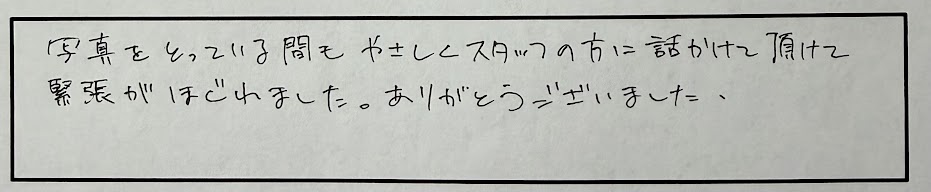 写真をとっている間もやさしくスタッフの方に話かけて頂けて
緊張がほどれました。ありがとうございました、